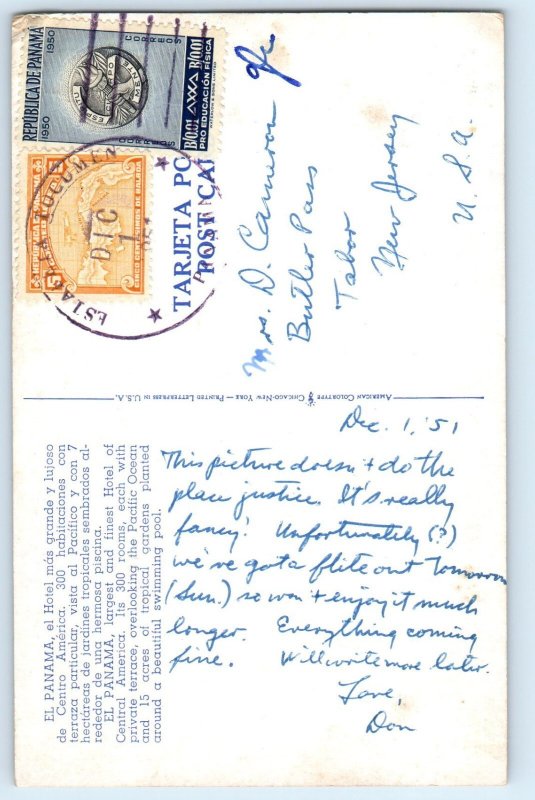 REPÚBLICA DE PANAMA
1950
1950
CORREOS
CORREOS
B/0.01
B/0.01
PRO EDUCACIÓN FÍSICA
CINCO CENTESIMOS DE BALBOA
5
5
DIC
TARJETA PO
POST CA
Mrs. D. Cameron
Butler Pass
Tabor
New Jersey
U. S. A.
AMERICAN COLORTYPE CHICAGO-NEW YORK — PRINTED LETTERPRESS IN U.S.A.
EL PANAMA, el Hotel más grande y lujoso
de Centro América. 300 habitaciones con
terraza particular, vista al Pacífico y con 7
hectáreas de jardines tropicales sembrados al-
rededor de una hermosa piscina.
EL PANAMA, largest and finest Hotel of
Central America. Its 300 rooms, each with
private terrace, overlooking the Pacific Ocean
and 15 acres of tropical gardens planted
around a beautiful swimming pool.
Dec. 1, '51
This picture doesn't do the
place justice. It's really
fancy! Unfortunately (?)
we've got a flite out tomorrow
(Sun.) so won't enjoy it much
longer. Everything coming
fine. Will write more later.
Love,
Don